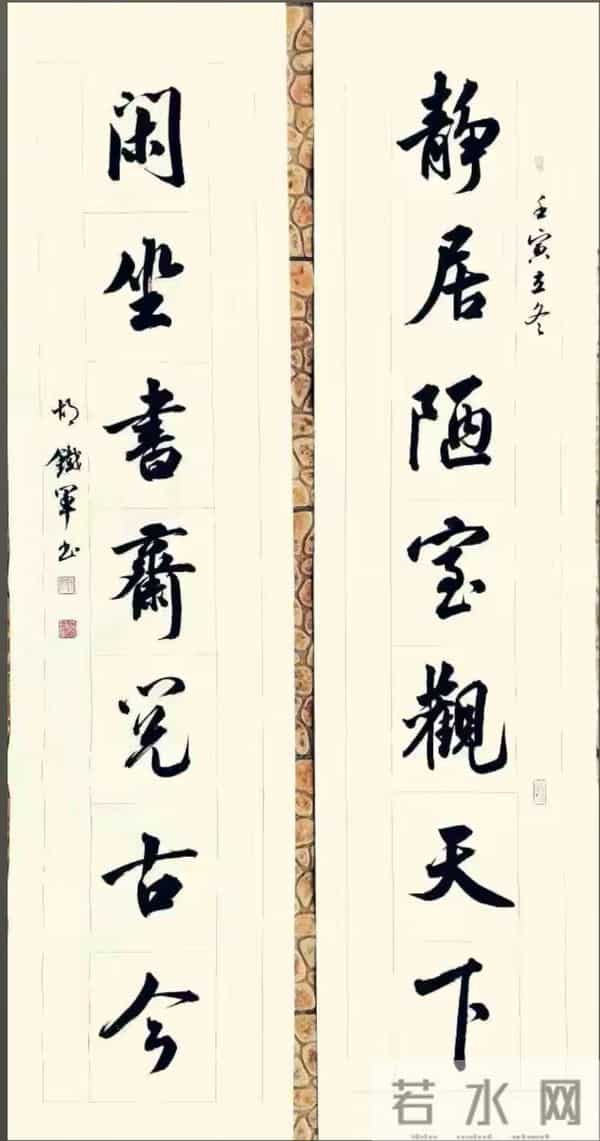 壬寅立冬
靜居陋室觀天下
閑坐書齋览古今
胡鐵軍书
若水网